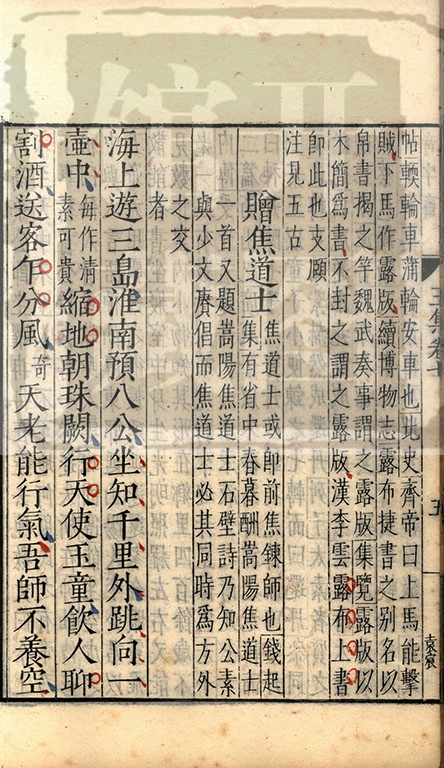 帖輭輪車蒲輪安車也北史齊帝曰上馬能擊
賊下馬作露版續博物志露布捷書之别名以
帛書揭之竿魏武奏事謂之露版集覽露版以
木簡爲書不封之謂之露版漢李雲露布上書
卽此也支頤
注見五古
贈焦道士
焦道士或卽前焦鍊師也錢起
集有省中春暮酬嵩陽焦道士
一首又題嵩陽焦道士石壁詩乃知公素
與少文賡倡而焦道士必其同時爲方外
之交
者
海上遊三島淮南預八公坐知千里外跳向一
壺中
每作清
素可貴
縮地朝珠闕行天使玉童飲人聊
割酒送客乍分風
奇
天老能行氣吾師不養空
五
袁宸